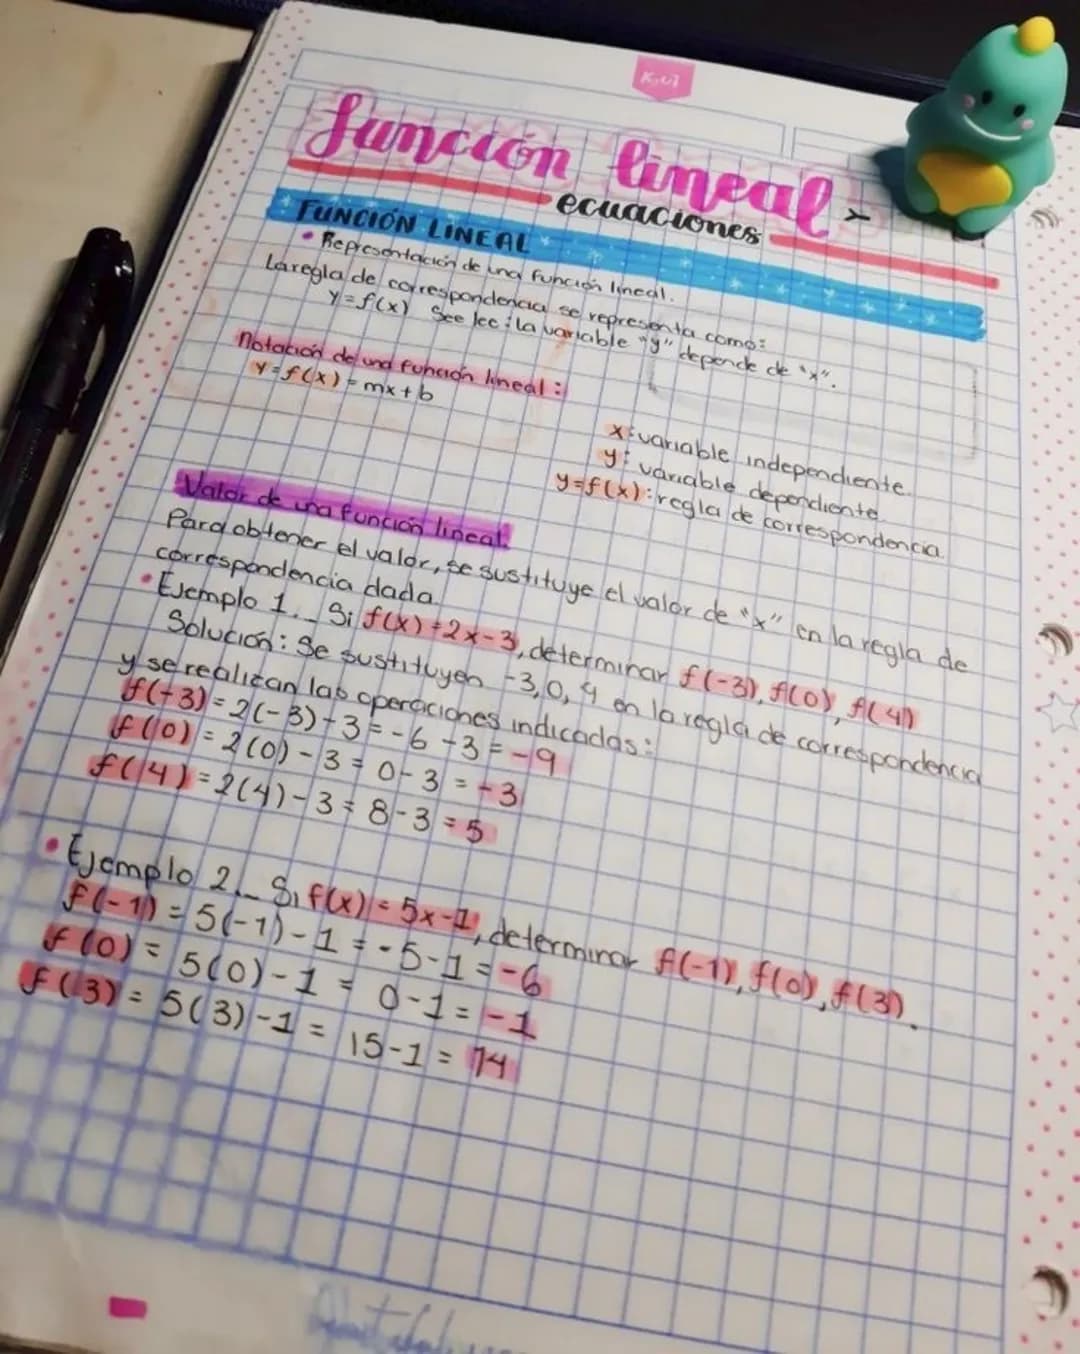 Kiut
función lineal -
ecuaciones
FUNCIÓN LINEAL
• Representación de una función lineal.
La regla de correspondencia se representa como:
y=f(x) See lee: la variable "y" depende de "x".
Notación de una función lineal:
y=f(x)=mx+b
x: variable independiente.
y: variable dependiente.
y=f(x): regla de correspondencia.
Valor de una función lineal.
Para obtener el valor, se sustituye el valor de "x" en la regla de
correspondencia dada.
• Ejemplo 1._ Si f(x)=2x-3, determinar f(-3), f(0), f(4)
Solución: Se sustituyen -3,0,4 en la regla de correspondencia
y se realizan las operaciones indicadas:
f(-3)=2(-3)-3=-6-3=-9
f(0)=2(0)-3=0-3=-3
f(4)=2(4)-3=8-3=5
• Ejemplo 2._ Si f(x)=5x-1, determinar f(-1), f(0), f(3).
f(-1)=5(-1)-1=-5-1=-6
f(0)=5(0)-1=0-1=-1
f(3)=5(3)-1=15-1=14